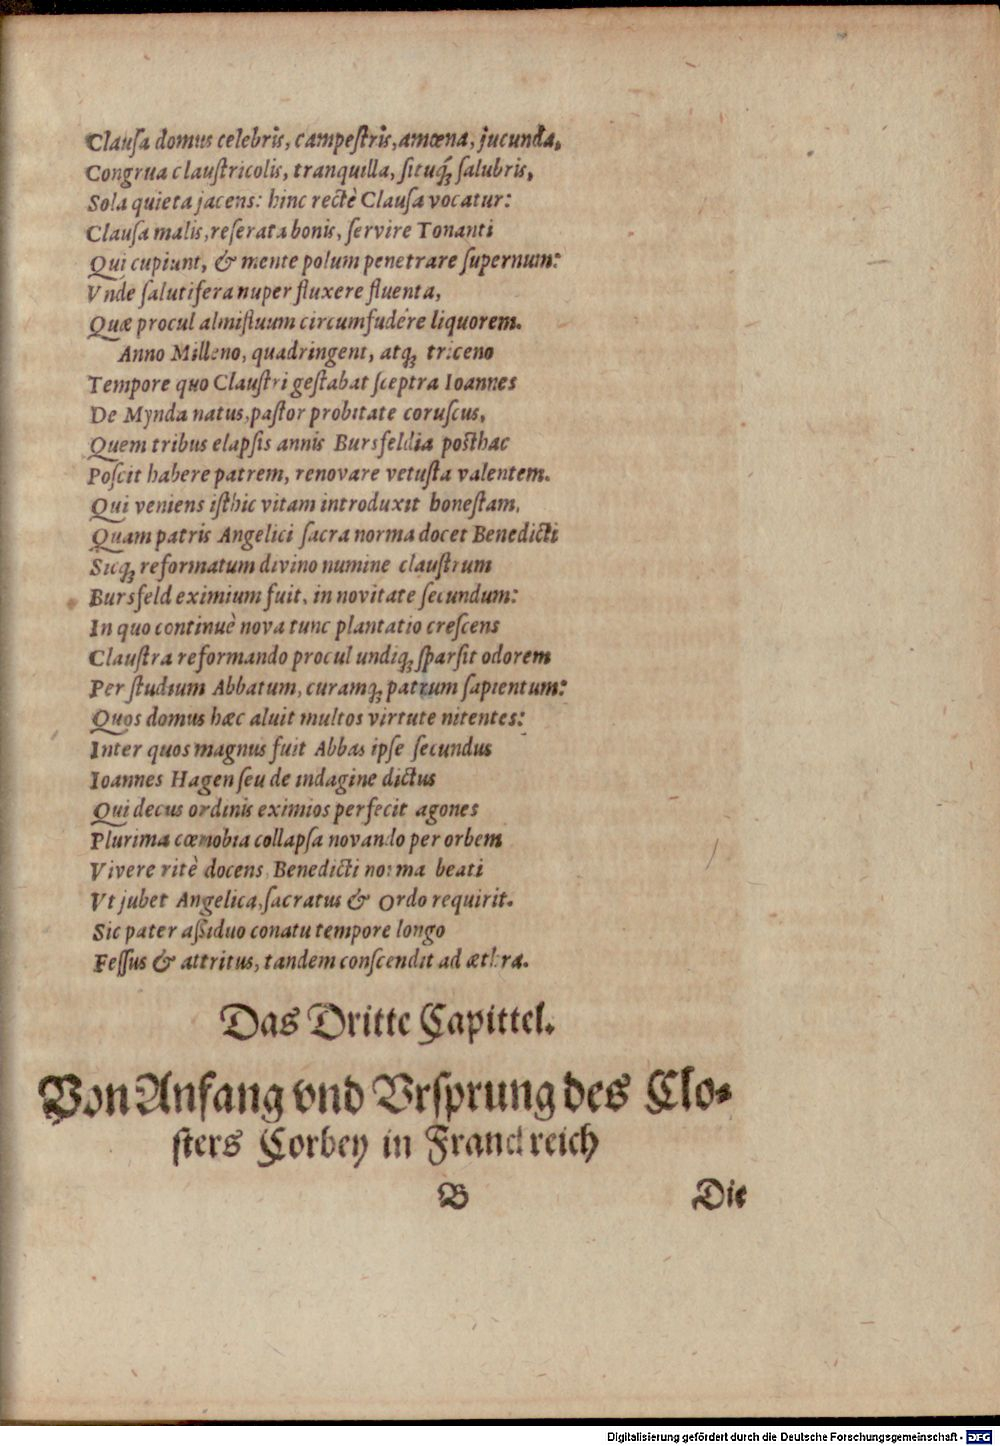 Clauſa domus celebris, campeſtris, amœna, jucunda,
Congrua clauſtricolis, tranquilla, ſituq́; ſalubris,
Sola quieta jacens: hinc rectè Clauſa vocatur:
Clauſa malis, reſerata bonis, ſervire Tonanti
Qui cupiunt, & mente polum penetrare ſupernum:
Vnde ſalutifera nuper fluxere fluenta,
Quæ procul almifluum circumfudére liquorem.
Anno Milleno, quadringent, atq; triceno
Tempore quo Clauſtri geſtabat ſceptra Ioannes
De Mynda natus, paſtor probitate coruſcus,
Quem tribus elapſis annis Bursfeldia poſthac
Poſcit habere patrem, renovare vetuſta valentem.
Qui veniens iſthic vitam introduxit honeſtam,
Quam patris Angelici ſacra norma docet Benedicti
Sicq; reformatum divino numine clauſtrum
Bursfeld eximium fuit, in novitate ſecundum:
In quo continuè nova tunc plantatio creſcens
Clauſtra reformando procul undiq; ſparſit odorem
Per ſtudium Abbatum, curamq; patrum ſapientum:
Quos domus hæc aluit multos virtute nitentes:
Inter quos magnus fuit Abbas ipſe ſecundus
Ioannes Hagen ſeu de indagine dictus
Qui decus ordinis eximios perfecit agones
Plurima cœnobia collapſa novando per orbem
Vivere ritè docens, Benedicti norma beati
Vt jubet Angelica, ſacratus & Ordo requirit.
Sic pater aſſiduo conatu tempore longo
Feſſus & attritus, tandem conſcendit ad æthra.
Das Dritte Capittel.
Von Anfang vnd Vrſprung des Clo-
ſters Corbey in Franckreich
B Die
Digitalisierung gefördert durch die Deutsche Forschungsgemeinschaft - DFG